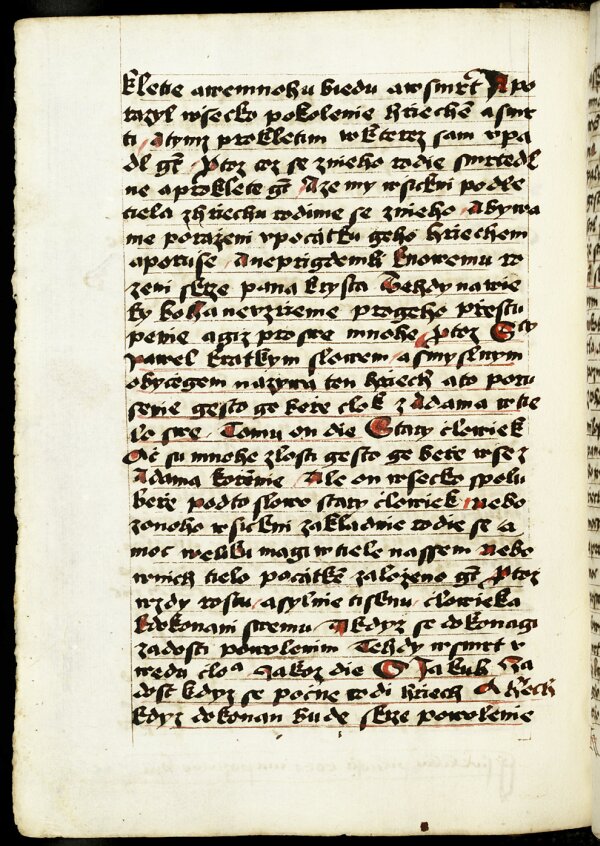 kletie awemnohu biedu awsmrt Apo
razyl wsecko pokolenie hriechē asmr
ti Atymz prokletim wkterez sam vpa
dl gt Ptoz coz se znieho rodie smrtedl
ne aproklete gt Aze my wsickni podle
tiela zhriechu rodime se znieho Abywa
me porazeni vpocatku geho hriechem
aporuse Aneprigdemli knowemu ro
zeni skrze pana krysta Tehdy nawie
ky boha nevzrieme progeho prestu
penie agiz proswe mnohe Ptoz Swty
pawel kratkym slowem asmyslnym
obyčegem nazywa ten hriech ato poru
senie gesto ge beře člok z Adama wtie
lo swe Tomu on die Stary člowiek
Ač su mnohe zlosti gesto ge beře wse z
Adama kořenie Ale on wsecko spolu
beře podto slowo stary člowiek nebo
zonoho wsickni zakladnie rodie se a
moc weliku magi wtiele nassem nebo
wnich tielo počatkē založeno gt Ptoz
wzdy rostu asylnie tisknu člowieka
kdokonani swemu Akdyz se dokonagi
zadosti powolenim Tehdy wsmrt v
wedu čloa Jakoz die S Jakub Ža
dost kdyz se počne rodi hriech A hřech
kdyz dokonan bude skrze powolenie